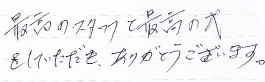 最高のスタッフと最高の式
をしていただき、ありがとうございます。